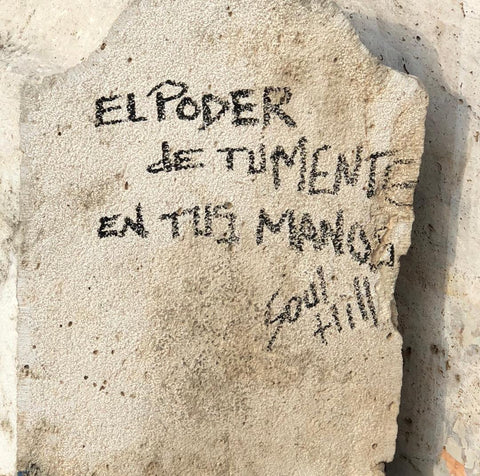 EL PODER
de TU MENTE
EN TUS MANOS
Soul